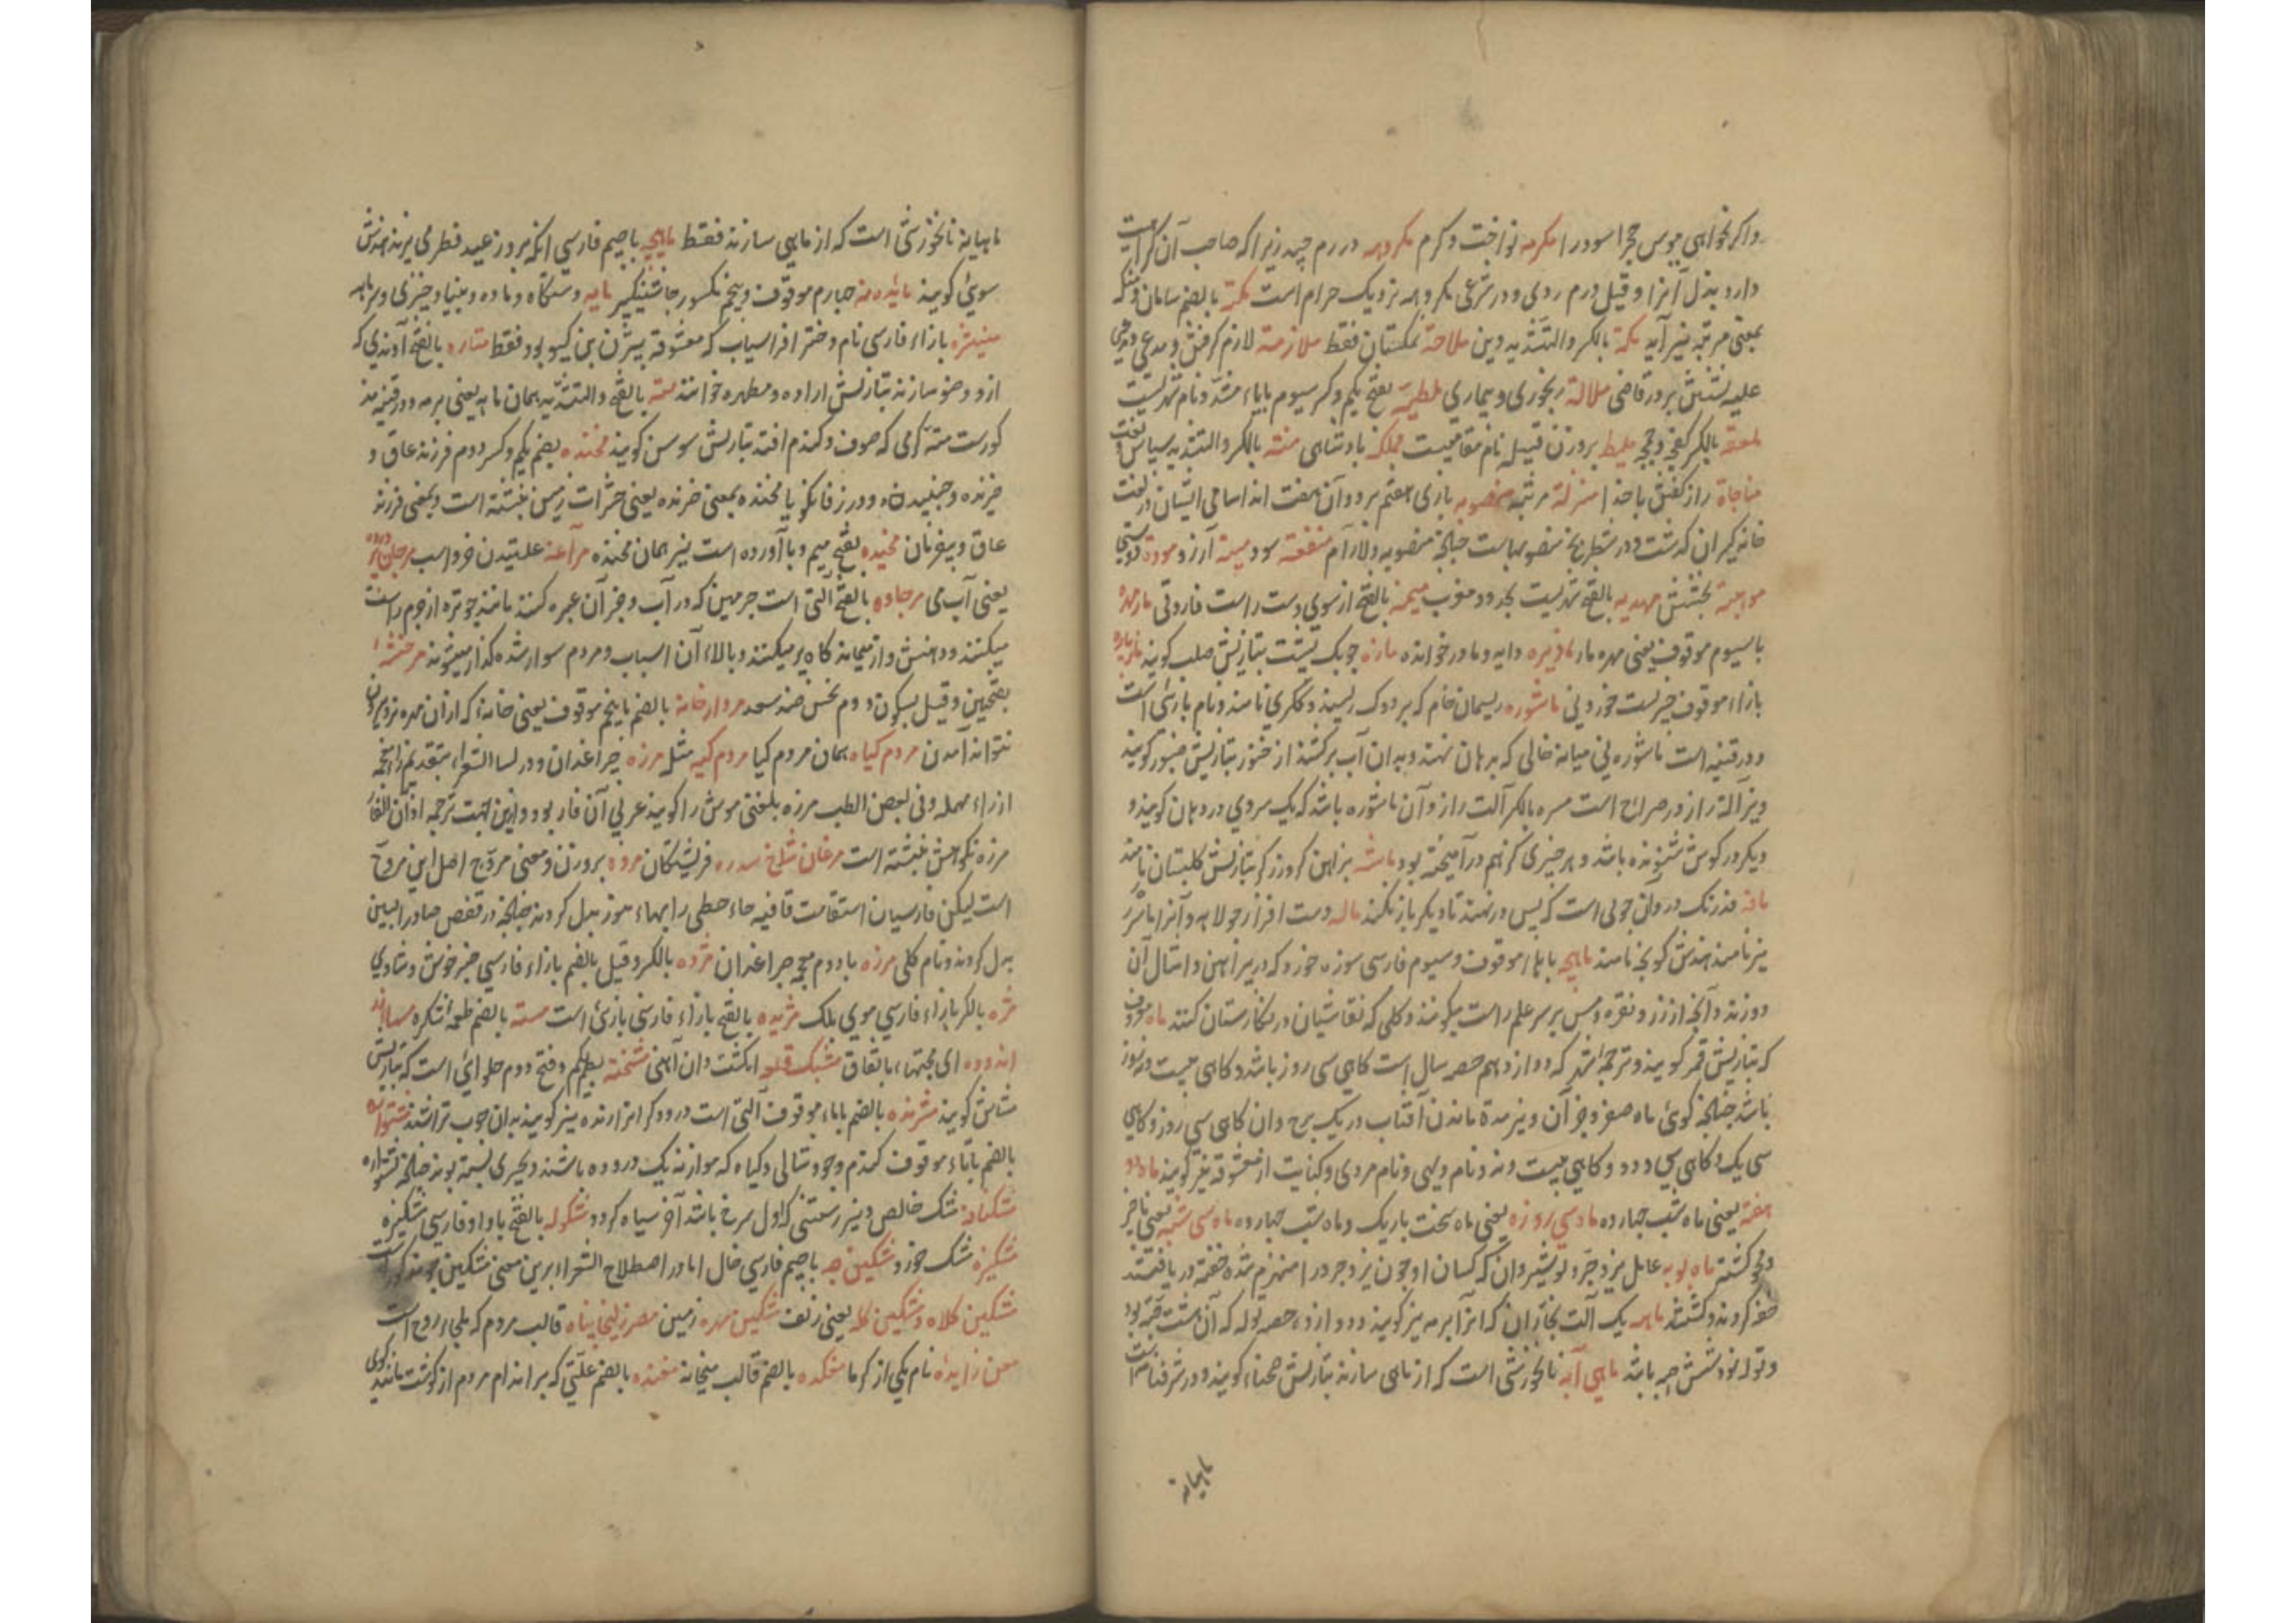 واکر نخواهی ببوس حجر اسود را مکرمه نواخت وکرم مکروهه در رم چید زیرا که صاحب آن کراهت
دارد بذل آنرا وقیل درم ردی ودر شرعی مکروهه نزدیک حرام است مکنة بالضم سامان ومنکه
بمعنی مرتبه نیز آید ملة بالکسر والتشدید دین ملاحة نمکستان فقط ملازمة لازم کرفتن ومدعی
علیه نشستن بر در قاضی ملالة رنجوری وبیماری ملطیه بفتح یکم وکسر سیوم بایاء مشدد نام شهریست
ملعقة بالکسر کفچه ملیط بر وزن قبیله نام مقامیست مملکة بادشاهی منة بالکسر والتشدید سپاس
مناجاة راز کفتن با خدا منزلة مرتبه منصوبه بازی هفتم نرد وآن هفت اند اسامی ایشان در لغت
خانه کیران کذشت ودر شطرنج منصوبهاست چنانچه منصوبه دلارام منفعة سود منیة آرزو مودة دوستی
موهبة بخشش مهدیه بالفتح شهریست بحدود مغرب میمنه بالفتح از سوی دست راست فاروقی مار مهره
با سیوم موقوف یعنی مهره مار دایه ومادر خوانده مازه چوبک پشت بتازیش صلب کویند
بازاء موقوف چیزیست خوردنی ماشوره ریسمان خام که بر دوک ریسند وککری نامند ونام بازئی است
ودر قنیه است ماشوره نی میانه خالی که بر دهان نهند وبدان آب برکشند از خنور بتازیش صنبور کویند
ونیز آلة راز ودر صراح است مسره بالکسر آلت راز وآن ماشوره باشد که یک سر وی در دهان کویند و
دیکر در کوش شنونده باشد وهر چیزی که بهم در آمیخته بود ماشه بزاهن که زرکر بتازیش کلبتان نامند
مافه فدرنک در وآن چوبی است که پس در نهند تا دیکر باز نکند ماله دست افزار جولاهه وآنرا
نیز نامند هندش کونچ نامند ماهچه با هاء موقوف وسیوم فارسی سوزه خورد که در پیراهن وامثال آن
دوزند وآنچه از زر ونقره ومس بر سر علم راست میکنند وکلی که نقاشیان در نکارستان کنند ماه معروف
که بتازیش قمر کویند وترجمه شهر که دوازدهم حصه سال است کاهی سی روز باشد وکاهی بیست ونه روز
باشد چنانچه کوئی ماه صفر وجز آن ونیز مدة ماندن آفتاب در یک برج وان کاهی سی روز وکاهی
سی یک وکاهی سی ودو وکاهی بیست ونه ونام ولیی ونام مردی وکنایت از معشوقه نیز کویند ماه دو
هفته یعنی ماه شب چهارده ماه سی روزه یعنی ماه سخت باریک وماه شب چهارده ماه سی شبه یعنی ناچیز
ومحو کشته ماه بویه عامل یزدجرد نوشیروان که کسان او چون یزدجرد را منهزم شده خفته در یافتند
حفر کردند وکشتند ماهه یک آلت نجاران که انرا برمه نیز کویند ودوازده حصه توله که آن هشت حبه بود
وتوله نود شش حبه باشد ماهی آبه نانخورشی است که از ماهی سازند بتازیش صحناة کویند ودر شرفنامه است
ماهیانه
ماهیانه نانخورشی است که از ماهی سازند فقط ماهیچه باجیم فارسی انکه بروز عید فطر می پزند هندش
سوئی کویند مائده ده جهارم موقوف وپنجم مکسور چاشنیکیر مایه دستکاه وماده وبنیاد چیزی وسرمایه
منیژه بازاء فارسی نام دختر افراسیاب که معشوقه بیژن بن کیو بود فقط متاره بالفتح آوندی که
ازو وضو سازند بتازیش اداوه ومطهره خوانند مته بالفتح والتشدید همان ماهه یعنی برمه ودر قنیه مذ
کورست مته کرمی که صوف وکندم افتد بتازیش سوس کویند مخنده بضم یکم وکسر دوم فرزند عاق و
خزنده وجنبیدن ودر زفانکویا مخنده بمعنی خزنده یعنی حشرات زمین نبشته است وبمعنی فرزند
عاق وبیفرمان مخیده بفتح میم وبا آورده است نیز همان مخنده مراغه غلتیدن خر واسب
یعنی آب می مرجاده بالفتح آلتی است چرمین که در آب وجز آن عبره کنند مانند جوتره از چرم راست
میکنند ودهنش واز میانه کاه پر میکنند وبالاء آن اسباب ومردم سوار شده کذار میشوند مرخشه
بفتحین وقیل بسکون دوم نحس ضد سعد مردارخانه بالضم باپنجم موقوف یعنی خانه که ازان مهره نرد بیرون
نتواند آمدن مردم کیاه همان مردم کیا مردم کیه مثله مرزه چراغدان ودر لسان الشعراء بتقدیم زاء معجمه
از راء مهمله وفی بعض الطب مرزه بلغتی موش را کویند عربی آن فار بود وازین جهت ترجمه اذان الفار
مرزه نکوش نبشته است مرغان شاخ سدره فریشتکان مروه بر وزن ومعنی مروح اصل این مروح
است لیکن فارسیان استقامت قافیه حاء حطی را بهاء هوز بدل کردند چنانچه در قفص صاد را بسین
بدل کردند ونام کلی مرزه با دوم معجمه چراغدان مژده بالکسر وقیل بالضم بازاء فارسی خبر خوش وشادی
مژه بالکسر بازاء فارسی موی پلک مژیده بالفتح بازاء فارسی بازئ است مسته بالضم طعمه شکره
اندوده ای مجتهاء باتفاق مشبک قلعه انکشت دان آهنی مشخته بضم یکم وفتح دوم حلوائی است که بتازیش
مشاش کویند مشرنده بالضم باباء موقوف آلتی است درودکرانرا رنده نیز کویند بدان چوب تراشند
بالضم باتاء موقوف کندم وجو وشالی وکیاه که موازنه یک دروده باشند وبچیزی بسته بوند چنانچه پشتواره
مشکنافه مشک خالص ونیز رستنی که اول سرخ باشد آخر سیاه کردد مشکوله بالفتح باواو فارسی مشکیزه
مشکیزه مشک خورد مشکین چه باجیم فارسی خال اما در اصطلاح الشعراء برین معنی مشکین جو مذکور است
مشکین کلاه ومشکین کله یعنی زلف مشکین مهره زمین مصر زلیخا پناه قالب مردم که ملجاء روح است
معن زایده نام یکی از کرما مغکده بالضم قالب میخانه مغنده بالضم علتی که بر اندام مردم از کوشت مانند کوی